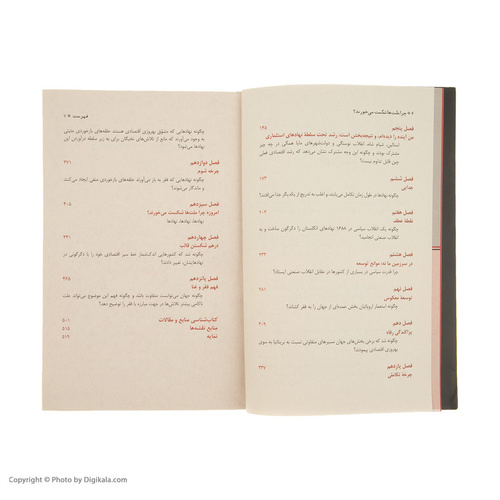 ** چرا ملت‌ها شکست می‌خورند؟
فصل پنجم
۱۴۵
من آینده را دیده‌ام، و نتیجه‌بخش است: رشد تحت سلطهٔ نهادهای استثماری
استالین، شیام شاه، انقلاب نوسنگی و دولت‌شهرهای مایا همگی در چه چیز
مشترک بودند و چگونه این وجه مشترک نشان می‌دهد که رشد اقتصادی فعلی
چین قابل تداوم نیست؟
فصل ششم
۱۷۳
جدایی
چگونه نهادها در طول زمان تکامل می‌یابند و اغلب به تدریج از یکدیگر جدا می‌افتند؟
فصل هفتم
۲۰۳
نقطهٔ عطف
چگونه یک انقلاب سیاسی در ۱۶۸۸ نهادهای انگلستان را دگرگون ساخت و به
انقلاب صنعتی انجامید؟
فصل هشتم
۲۳۳
در سرزمین ما نه: موانع توسعه
چرا قدرت سیاسی در بسیاری از کشورها در مقابل انقلاب صنعتی ایستاد؟
فصل نهم
۲۸۱
توسعهٔ معکوس
چگونه استعمار اروپاییان بخش عمده‌ای از جهان را به فقر کشاند؟
فصل دهم
۳۰۹
پراکندگی رفاه
چگونه شد که برخی بخش‌های جهان مسیرهای متفاوتی نسبت به بریتانیا به سوی
بهروزی اقتصادی پیمودند؟
فصل یازدهم
۳۳۷
چرخهٔ تکاملی
فهرست **
چگونه نهادهایی که مشوق بهروزی اقتصادی هستند حلقه‌های بازخوردی مثبتی
به وجود می‌آورند که مانع از تلاش‌های نخبگان برای به زیر سلطه درآوردن این
نهادها می‌شود؟
فصل دوازدهم
۳۷۱
چرخهٔ شوم
چگونه نهادهایی که فقر به بار می‌آورند حلقه‌های بازخوردی منفی ایجاد می‌کنند
و ماندگار می‌شوند؟
فصل سیزدهم
۴۰۵
امروزه چرا ملت‌ها شکست می‌خورند؟
نهادها، نهادها، نهادها
فصل چهاردهم
۴۴۱
درهم شکستن قالب
چگونه شد که کشورهایی اندک‌شمار خط سیر اقتصادی خود را با دگرگونی در
نهادهایشان، تغییر دادند؟
فصل پانزدهم
۴۶۵
فهم فقر و غنا
چگونه جهان می‌توانست متفاوت باشد و چگونه فهم این موضوع می‌تواند علت
ناکامی بیشتر تلاش‌های در جهت مبارزه با فقر را توضیح دهد؟
کتاب‌شناسی منابع و مقالات
۵۰۱
منابع نقشه‌ها
۵۱۵
نمایه
۵۱۹
Copyright © Photo by Digikala.com